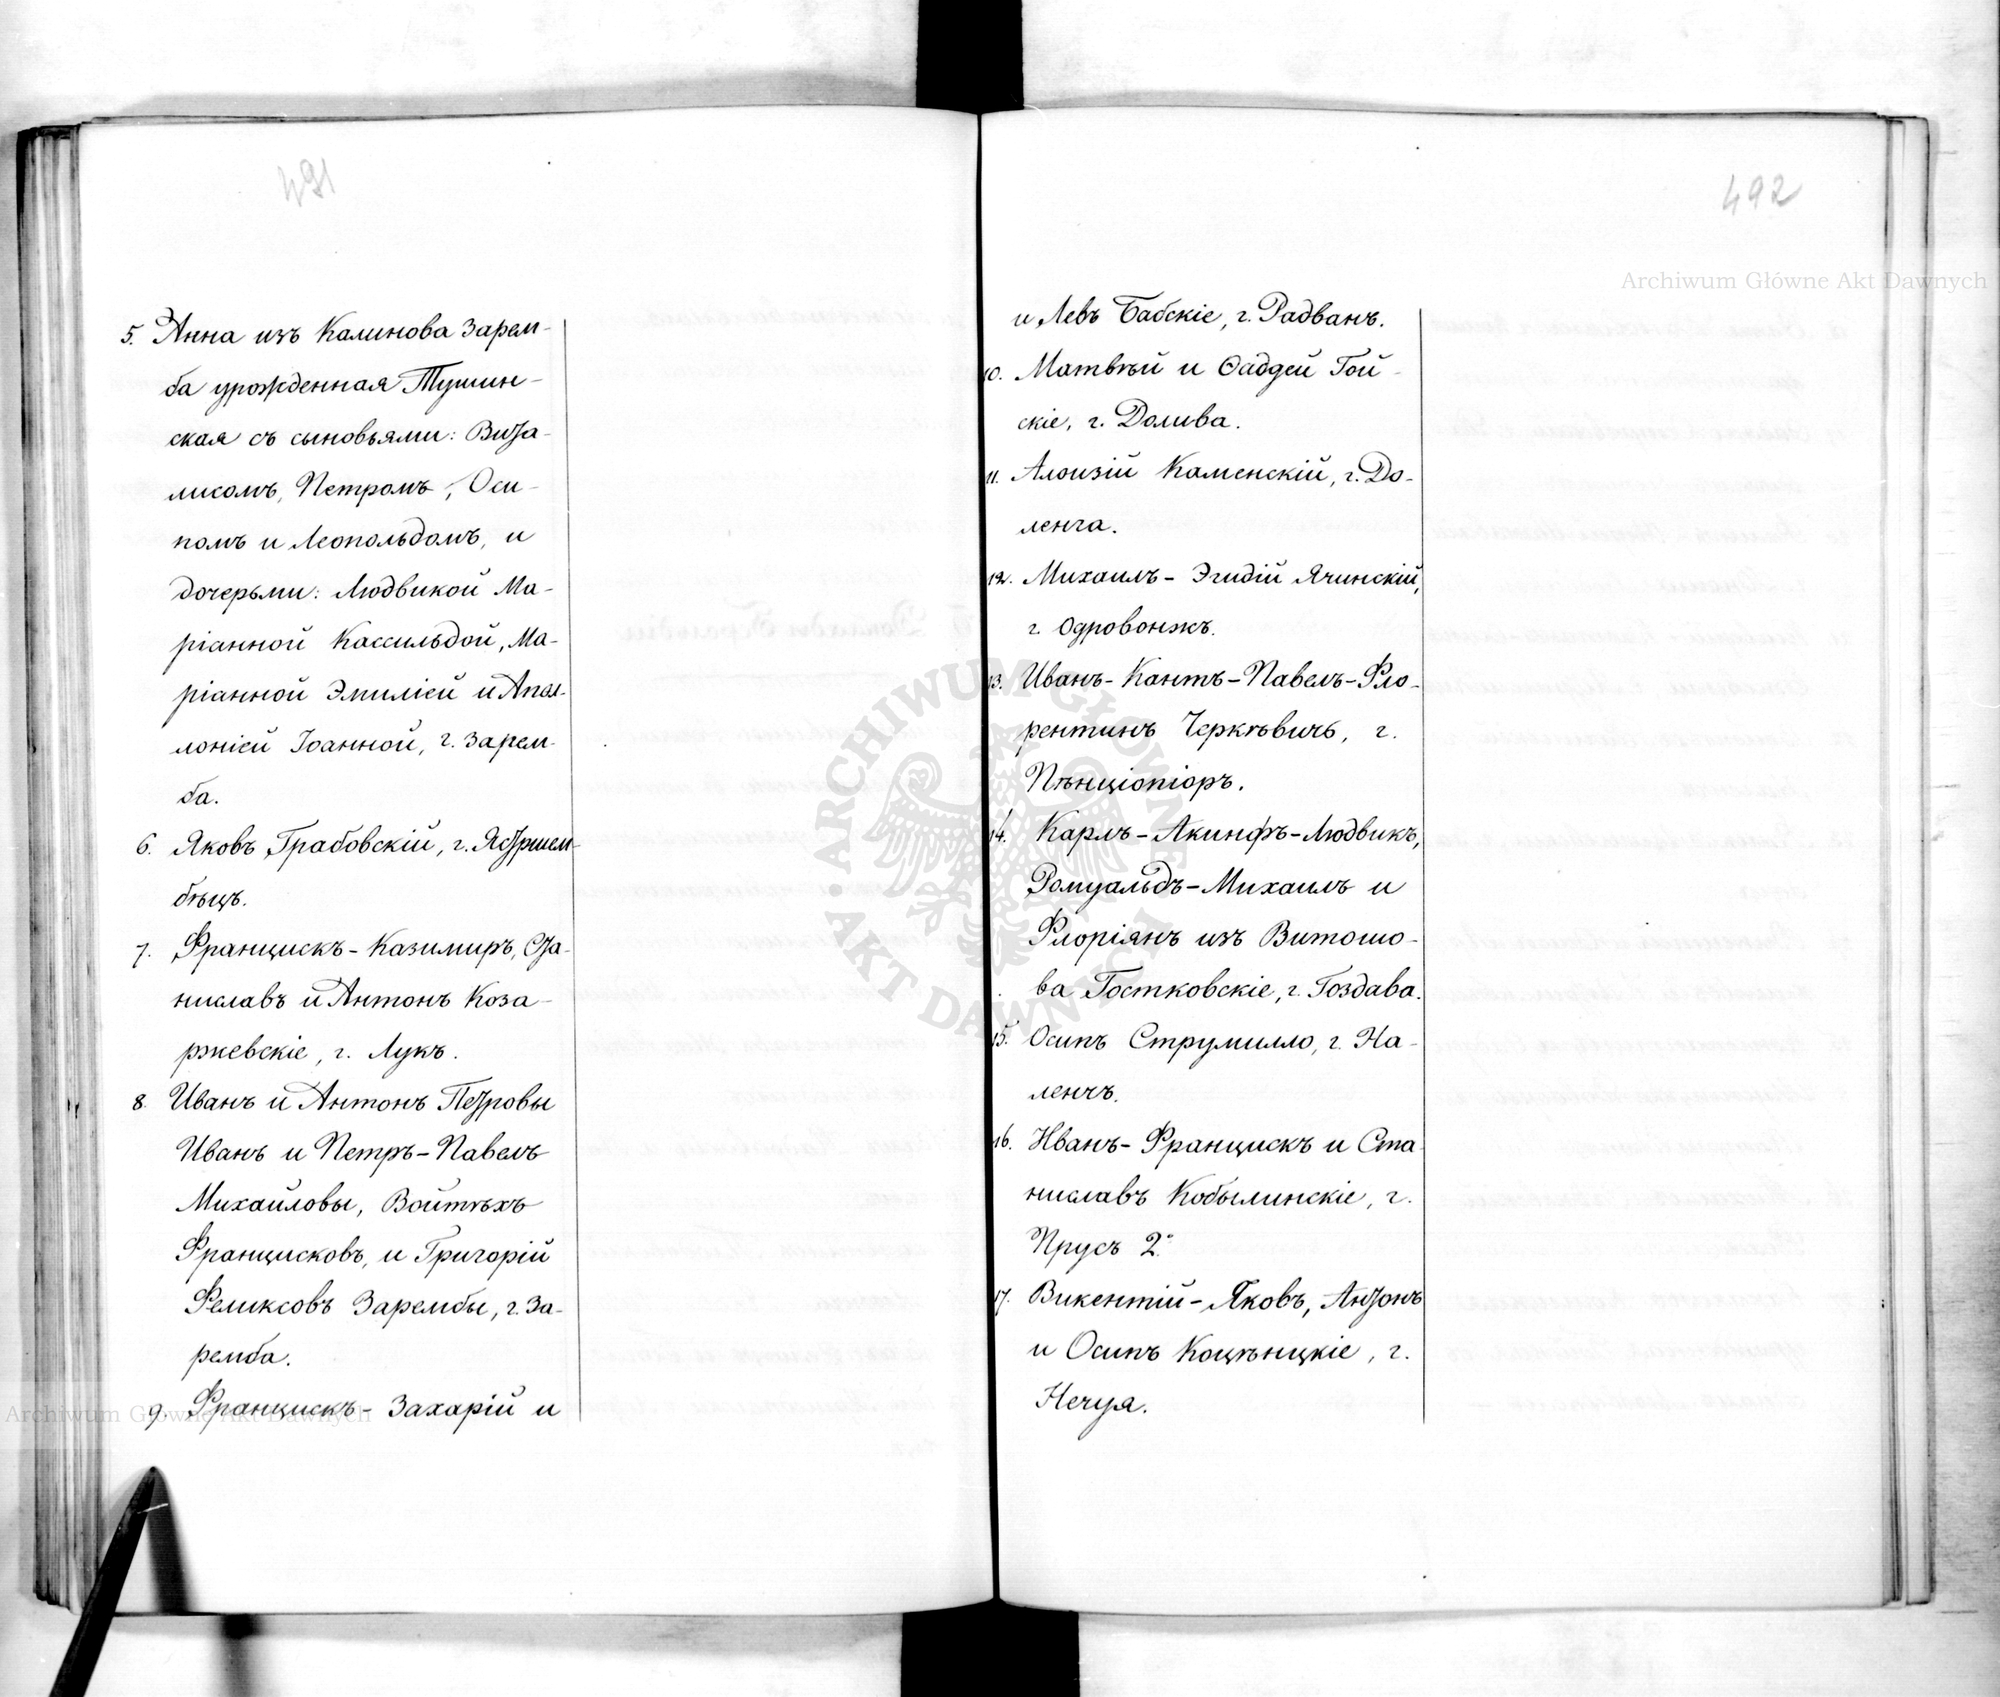 491
5. Анна изъ Калинова Зарем-
ба урожденная Тушин-
ская съ сыновьями: Вита-
лисомъ, Петромъ, Оси-
помъ и Леопольдомъ, и
дочерьми: Людвикой Ма-
ріанной Кассильдой, Ма-
ріанной Эмиліей и Апол-
лоніей Іоанной, г. Зарем-
ба.
6. Яковъ Грабовскій, г. Ястршем-
бѣцъ.
7. Францискъ-Казимиръ, Ста-
ниславъ и Антонъ Коза-
ржевскіе, г. Лукъ.
8. Иванъ и Антонъ Петровы
Иванъ и Петръ-Павелъ
Михайловы, Войтѣхъ
Францисковъ, и Григорій
Феликсовъ Зарембы, г. За-
ремба.
9. Францискъ-Захарій и
492
и Левъ Бабскіе, г. Радванъ.
10. Матвѣй и Ѳаддей Гой-
скіе, г. Долива.
11. Алоизій Каменскій, г. До-
ленга.
12. Михаилъ-Эгидій Ячинскій,
г. Одровонжъ.
13. Иванъ-Кантъ-Павелъ-Фло-
рентинъ Черкѣвичъ, г.
Пѣнціопіоръ.
14. Карлъ-Акинфъ-Людвикъ,
Ромуальдъ-Михаилъ и
Флоріянъ изъ Витошо-
ва Гостковскіе, г. Гоздава.
15. Осипъ Струмилло, г. На-
ленчъ.
16. Иванъ-Францискъ и Ста-
ниславъ Кобылинскіе, г.
Прусъ 2.º
17. Викентій-Яковъ, Антонъ
и Осипъ Коцѣнцкіе, г.
Нечуя.
Archiwum Główne Akt Dawnych
Archiwum Główne Akt Dawnych
ARCHIWUM GŁÓWNE AKT DAWNYCH